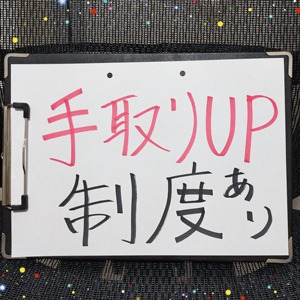 手取りUP
制度あり